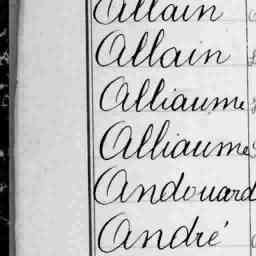 Allain
Allain
Alliaume
Alliaume
Andouard
André